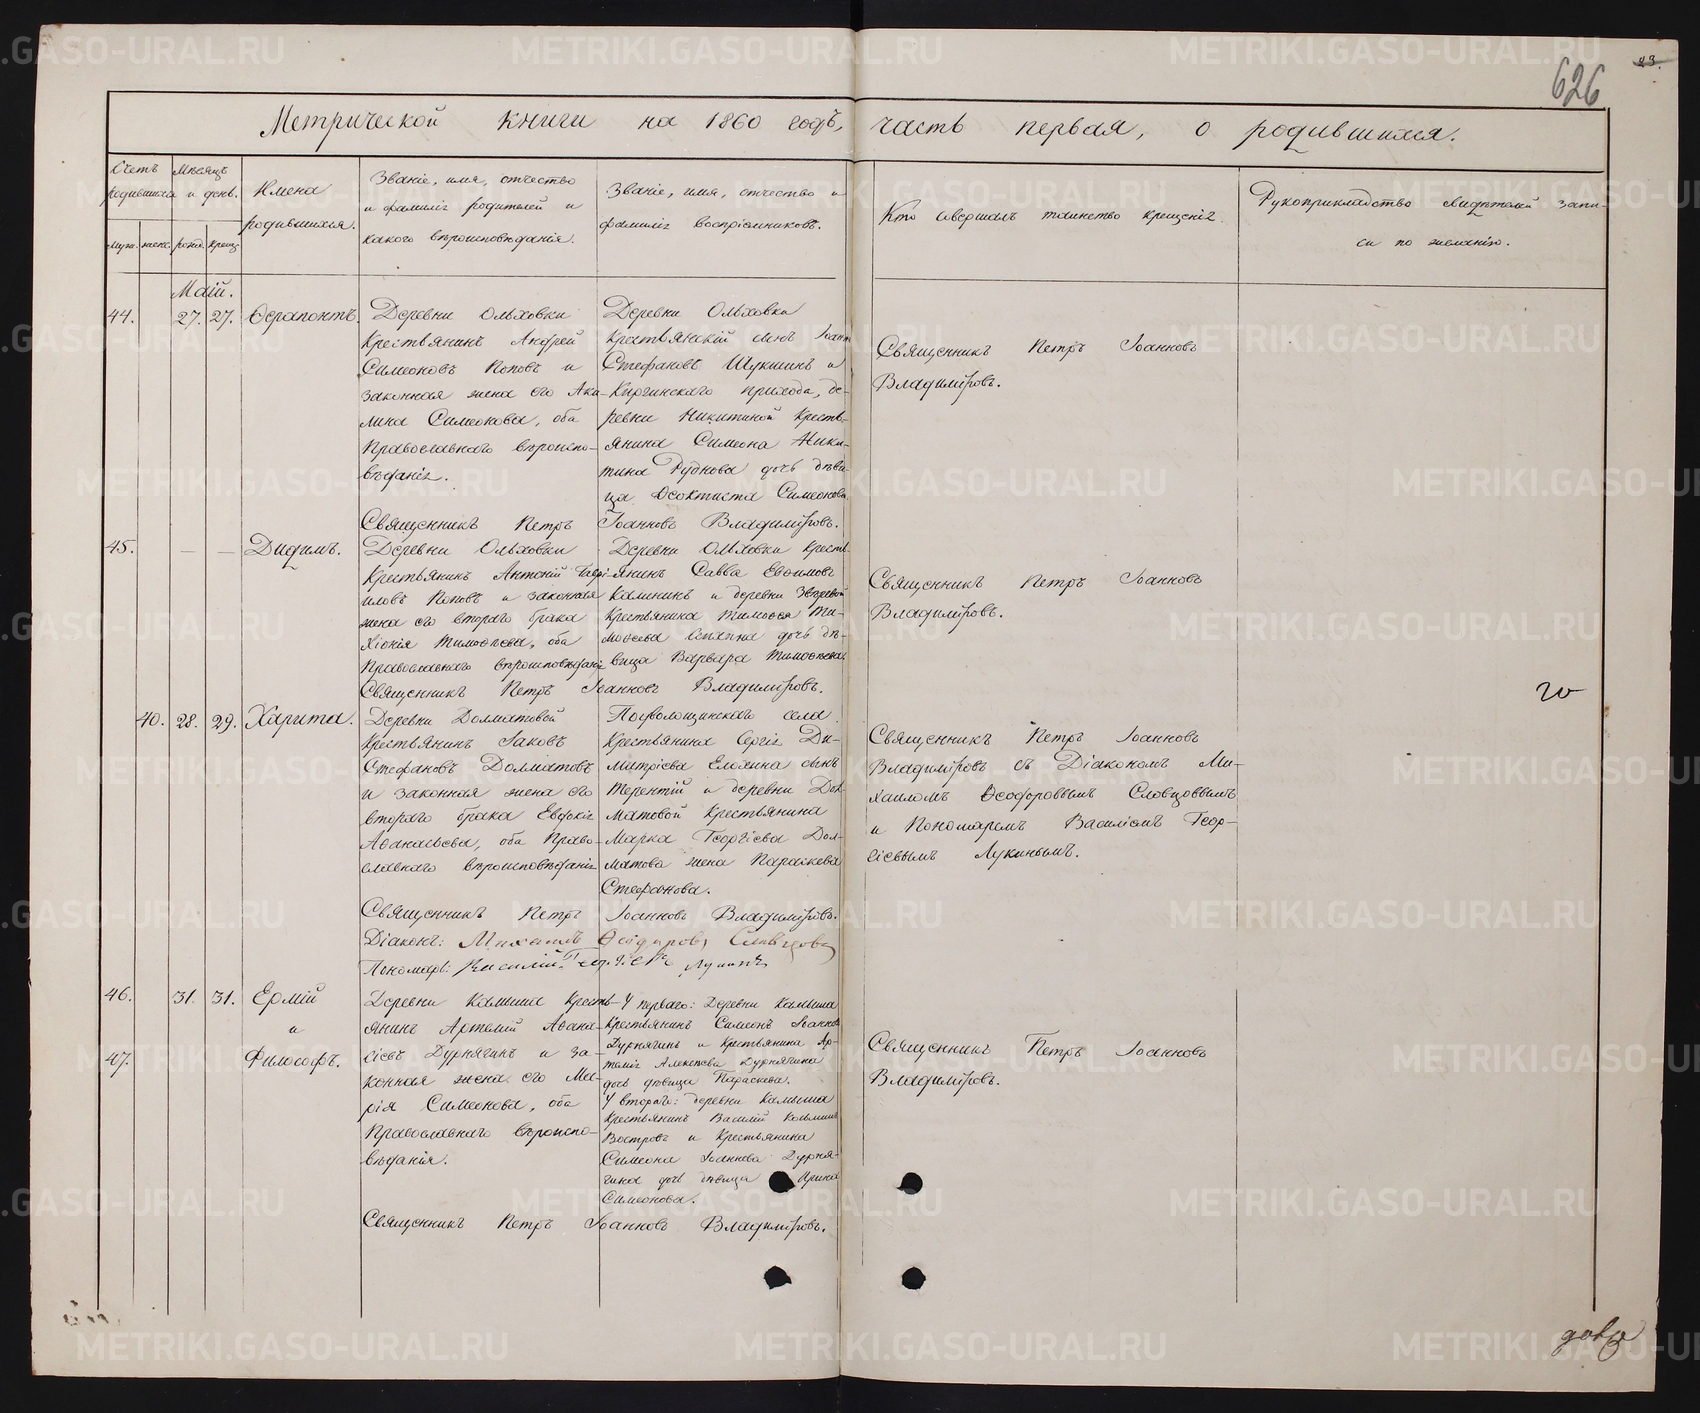 626
23.
Метрической книги на 1860 годъ, часть первая, о родившихся.
Счетъ родившихся
Мѣсяцъ и день.
Имена родившихся.
Званіе, имя, отчество
и фамилія родителей и
какого вѣроисповѣданія.
Званіе, имя, отчество и
фамилія воспріемниковъ.
Кто совершалъ таинство крещенія.
Рукоприкладство свидѣтелей запи-
си по желанію.
муж. женс. рожд. крещ.
Маій.
44. 27. 27. Ѳерапонтъ.
Деревни Ольховки
Крестьянинъ Андрей
Симеоновъ Поповъ и
законная жена его Аки-
лина Симеонова, оба
Православнаго вѣроиспо-
вѣданія.
Деревни Ольховки
Крестьянскій сынъ Іоаннъ
Стефановъ Шукшинъ и
Киргинскаго прихода, де-
ревни Никитиной Кресть-
янина Симеона Ники-
тина Руднова дочь дѣви-
ца Ѳеоктиста Симеонова.
Священникъ Петръ Іоанновъ
Владиміровъ.
Священникъ Петръ Іоанновъ Владиміровъ.
45. — — Дидимъ.
Деревни Ольховки
Крестьянинъ Антоній Гаврі-
иловъ Поповъ и законная
жена его втораго брака
Хіонія Тимоѳеева, оба
Православнаго вѣроисповѣданія
Деревни Ольховки Кресть-
янинъ Савва Евѳимовъ
Калининъ и деревни Звѣревой
Крестьянина Тимоѳея Ти-
моѳеева дочь дѣ-
вица Варвара Тимоѳеева.
Священникъ Петръ Іоанновъ
Владиміровъ.
Священникъ Петръ Іоанновъ Владиміровъ.
40. 28. 29. Харитина.
Деревни Долматовой
Крестьянинъ Іаковъ
Стефановъ Долматовъ
и законная жена его
втораго брака Евдокія
Аѳанасьева, оба Право-
славнаго вѣроисповѣданія
Подволошинскаго села
Крестьянина Сергія Ди-
митріева Елохина сынъ
Терентій и деревни Дол-
матовой Крестьянина
Марка Георгіева Дол-
матова жена Параскева
Стефанова.
Священникъ Петръ Іоанновъ
Владиміровъ съ Діакономъ Ми-
хаиломъ Ѳеодоровымъ Словцовымъ
и Пономаремъ Василіемъ Геор-
гіевымъ Лукинымъ.
Священникъ Петръ Іоанновъ Владиміровъ.
Діаконъ: Михаилъ Ѳеодоровъ Словцовъ
Пономарь: Василій Георгіевъ Лукинъ
46. 31. 31. Ермій
и
47. Философъ.
Деревни Камыша Кресть-
янинъ Артемій Аѳана-
сіевъ Дурнягинъ и за-
конная жена его Ма-
рія Симеонова, оба
Православнаго вѣроиспо-
вѣданія.
У перваго: Деревни Камыша
Крестьянинъ Симеонъ Іоанновъ
Дурнягинъ и Крестьянина Ар-
темія Алексѣева Дурнягина
дочь дѣвица Параскева.
У втораго: деревни Камыша
Крестьянинъ Василій Козьминъ
Востровъ и Крестьянина
Симеона Іоаннова Дурня-
гина дочь дѣвица Ирина
Симеонова.
Священникъ Петръ Іоанновъ
Владиміровъ.
Священникъ Петръ Іоанновъ Владиміровъ.
METRIKI.GASO-URAL.RU